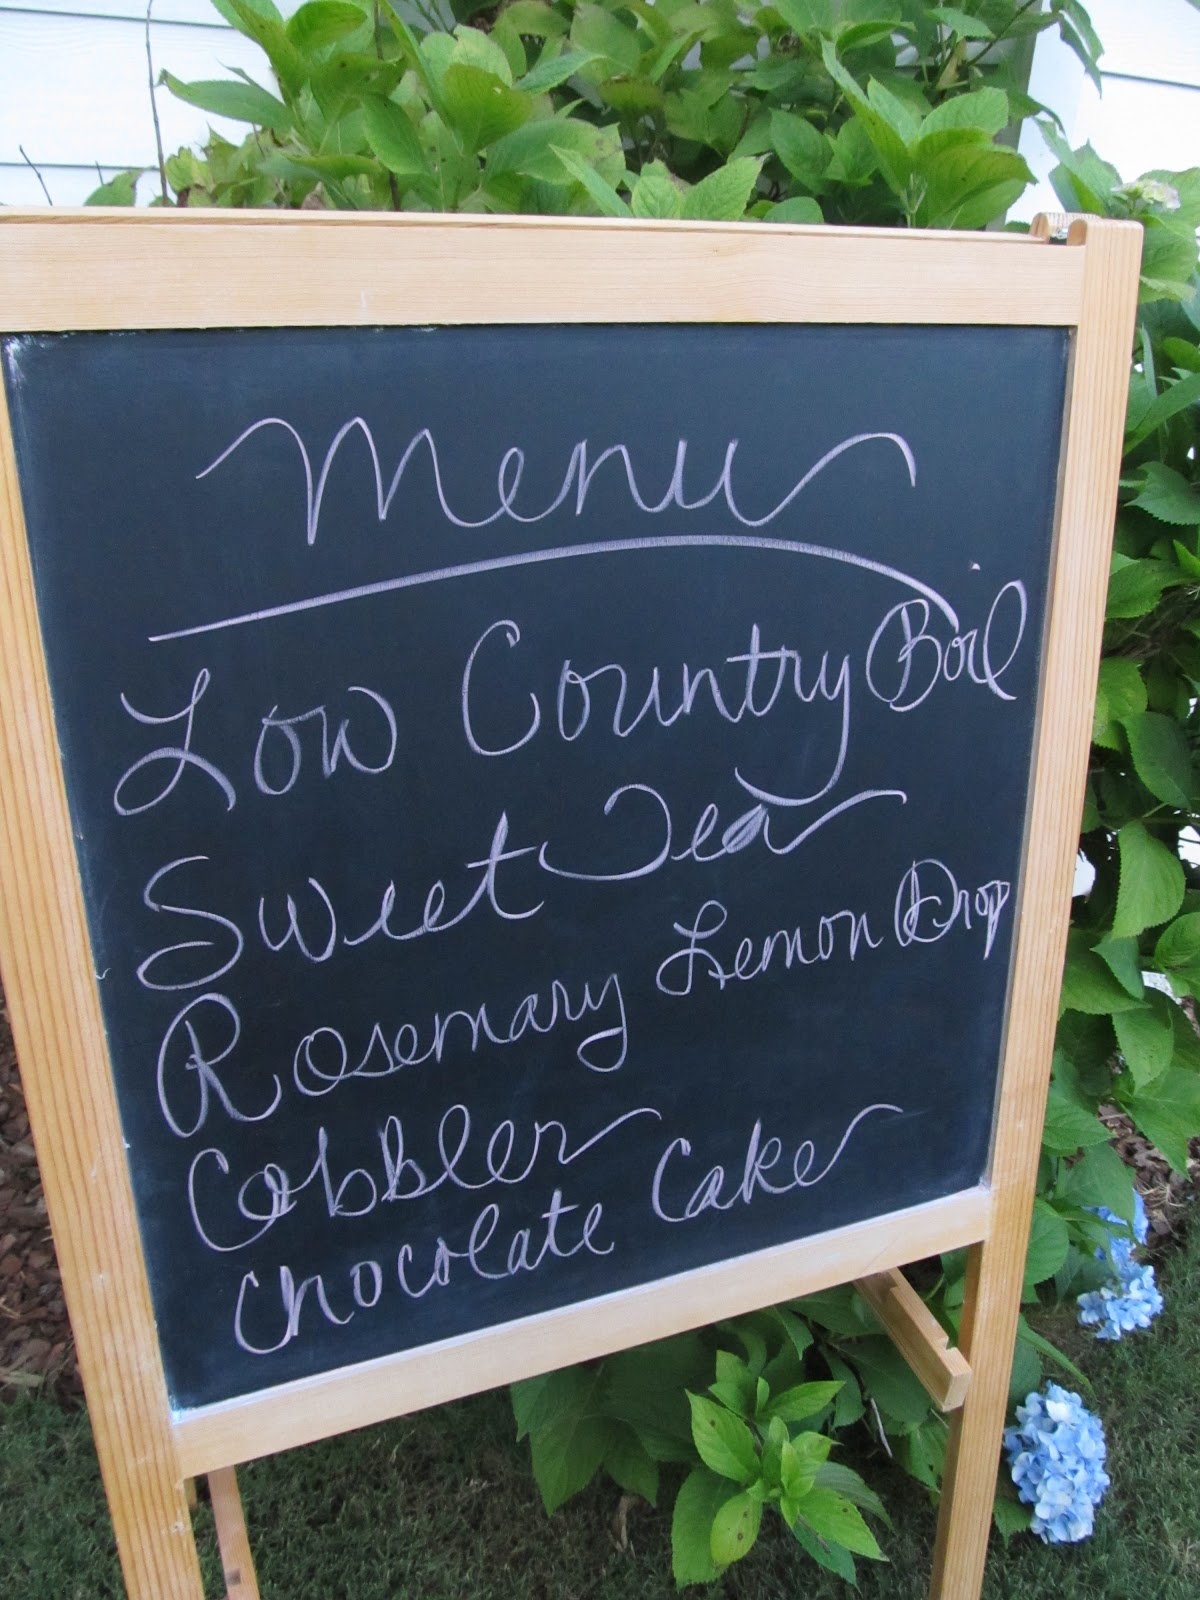 Menu
Low Country Boil
Sweet Tea
Rosemary Lemon Drop
Cobbler
Chocolate Cake